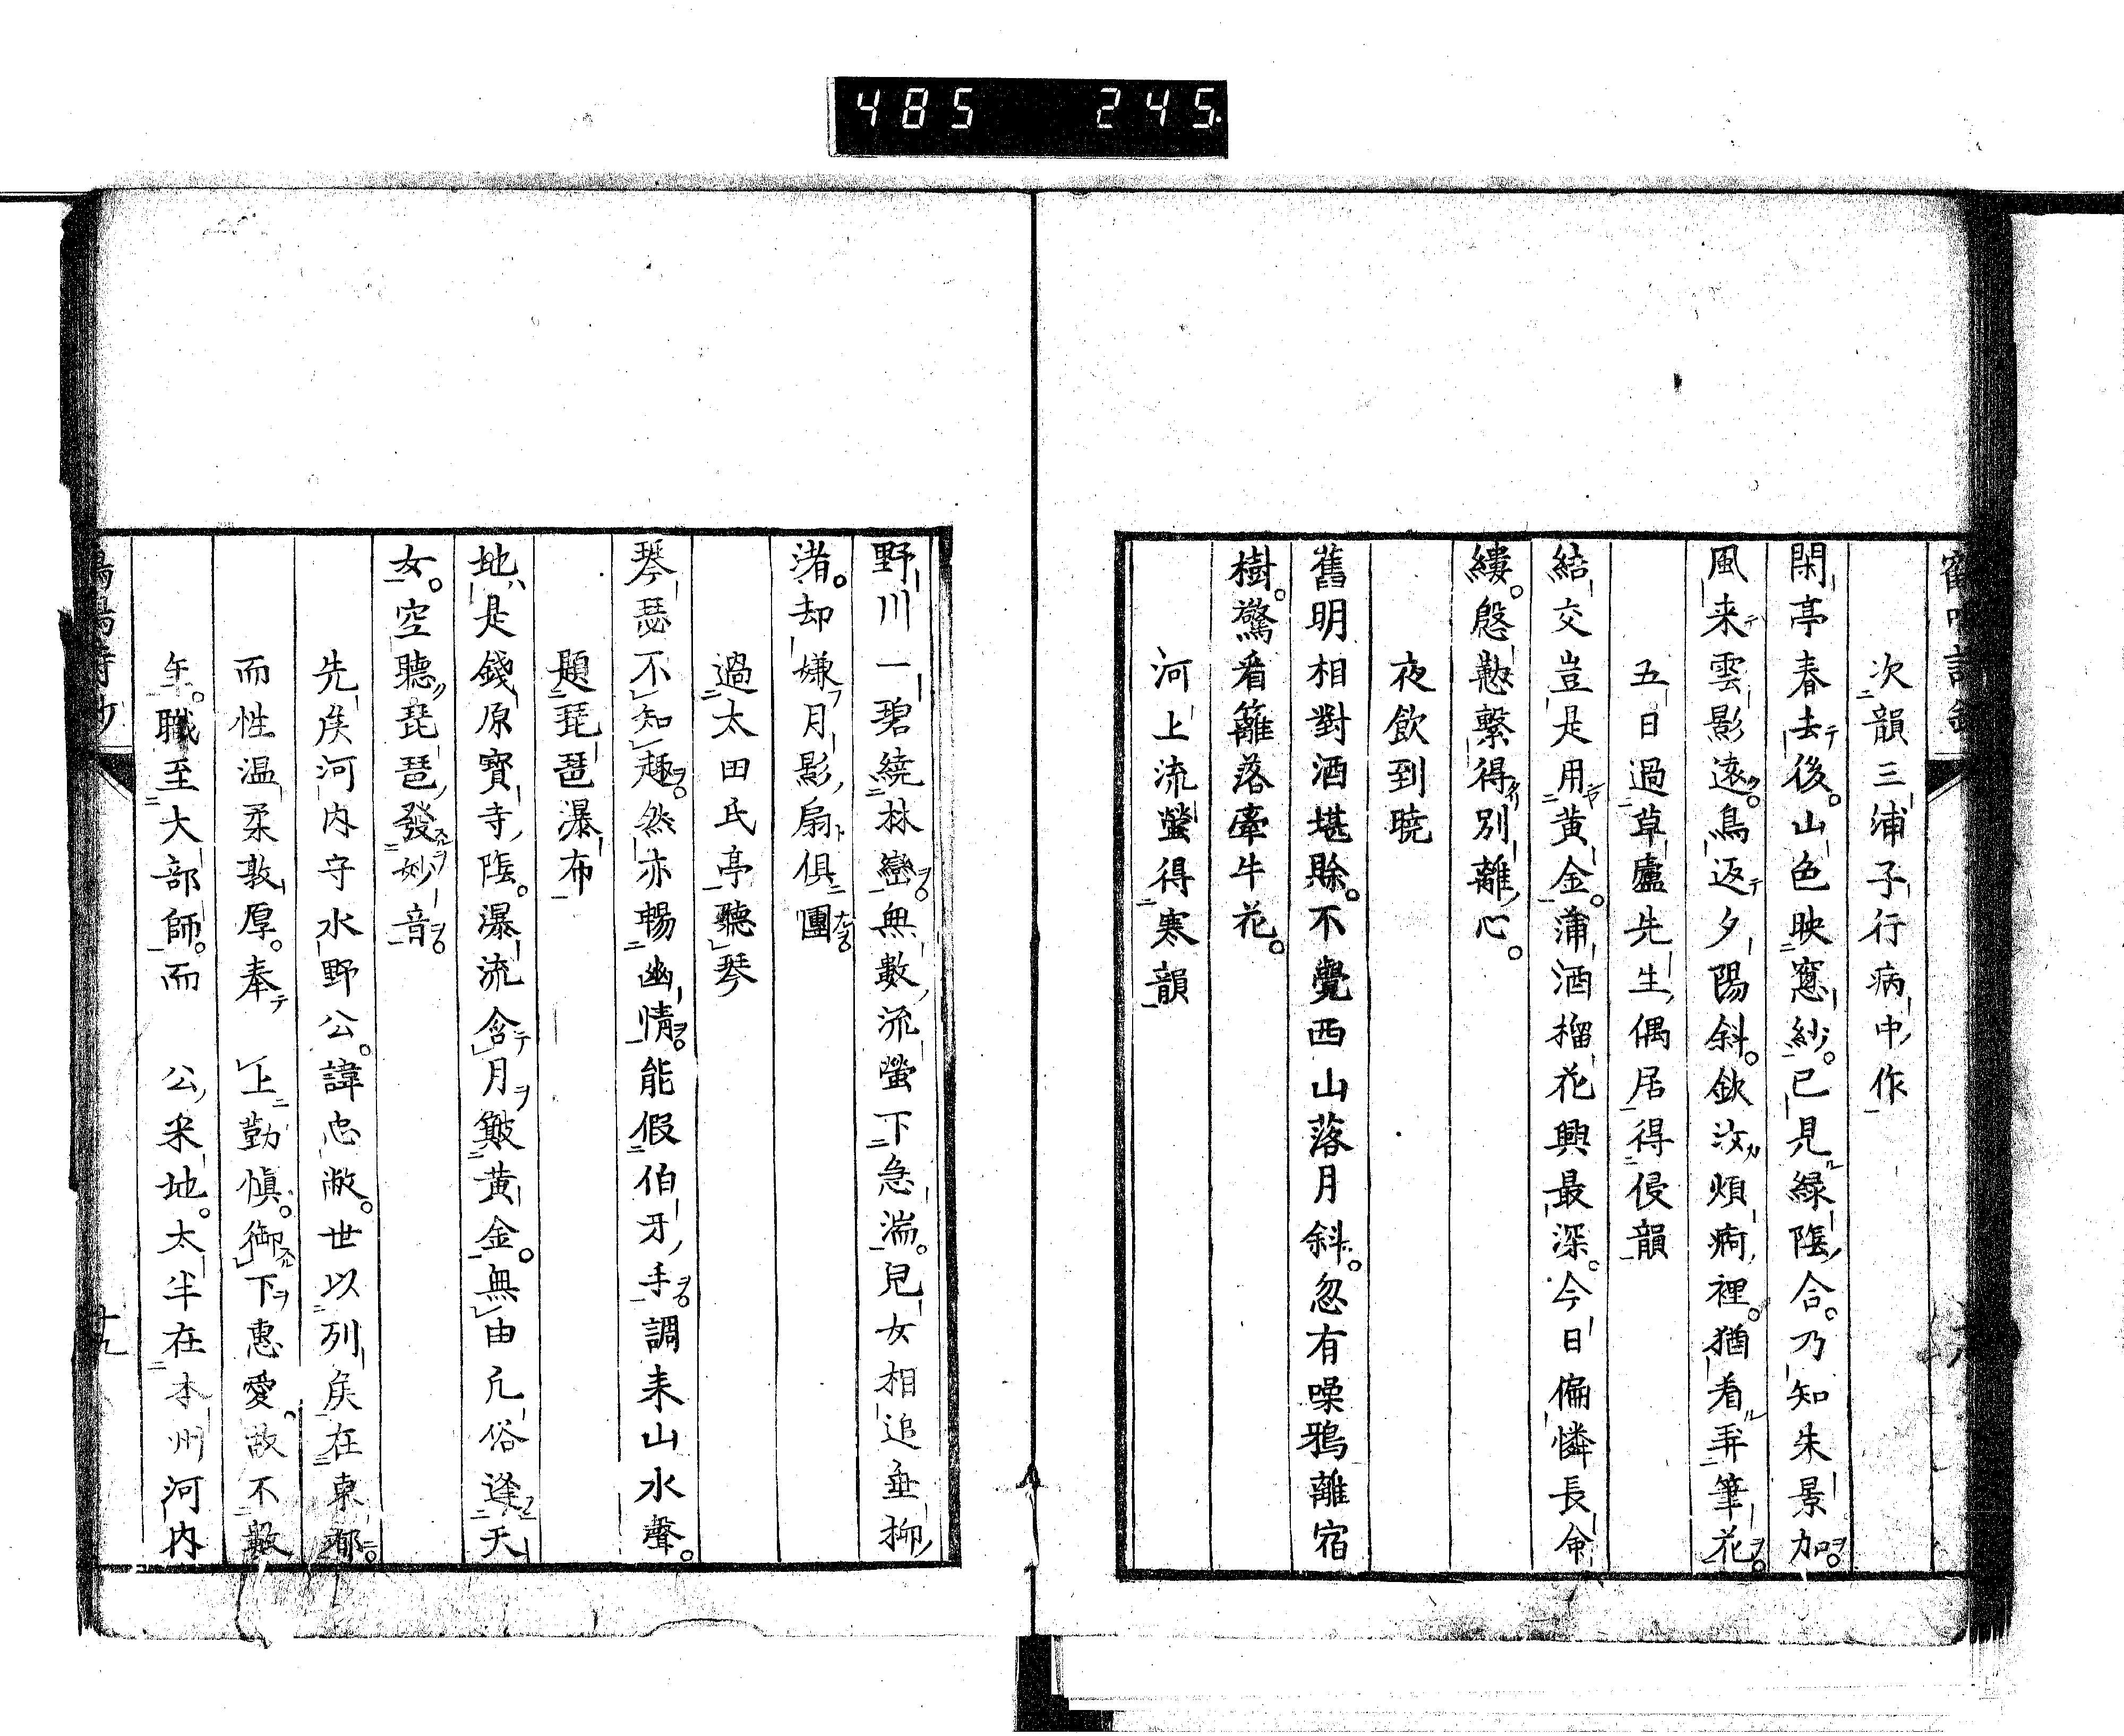 485 245
次韻三浦子行病中作
閑亭春去後。山色映窓紗。已見緑陰合。乃知朱景加。
風来雲影遠。鳥返夕陽斜。欽汝煩痾裡。猶看弄筆花。
五日過草廬先生偶居得侵韻
結交豈是用黄金。蒲酒榴花興最深。今日偏憐長命
縷。慇懃繫得別離心。
夜飲到曉
舊明相對酒堪賒。不覺西山落月斜。忽有噪鴉離宿
樹。驚看籬落牽牛花。
河上流螢得寒韻
野川一碧繞林巒。無數流螢下急湍。兒女相追垂柳
渚。却嫌月影扇俱團
過太田氏亭聽琴
琴瑟不知趣。然亦暢幽情。能假伯牙手。調来山水聲。
題琵琶瀑布
地是錢原寶寺陰。瀑流含月皺黄金。無由凡俗逢天
女。空聽琵琶發妙音。
先矦河内守水野公。諱忠敝。世以列矦在東都。
而性温柔敦厚。奉 上勤愼。御下惠愛。故不數
年。職至大部師。而 公采地。太半在本州河内